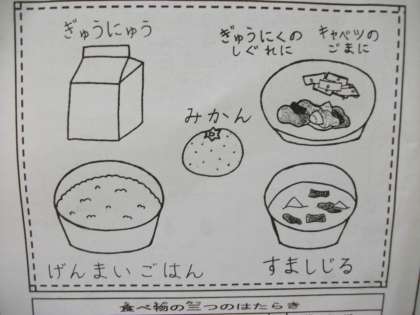 ぎゅうにゅう
ぎゅうにくの
しぐれに
キャベツの
ごまに
みかん
げんまいごはん
すましじる
食べ物の三つのはたらき